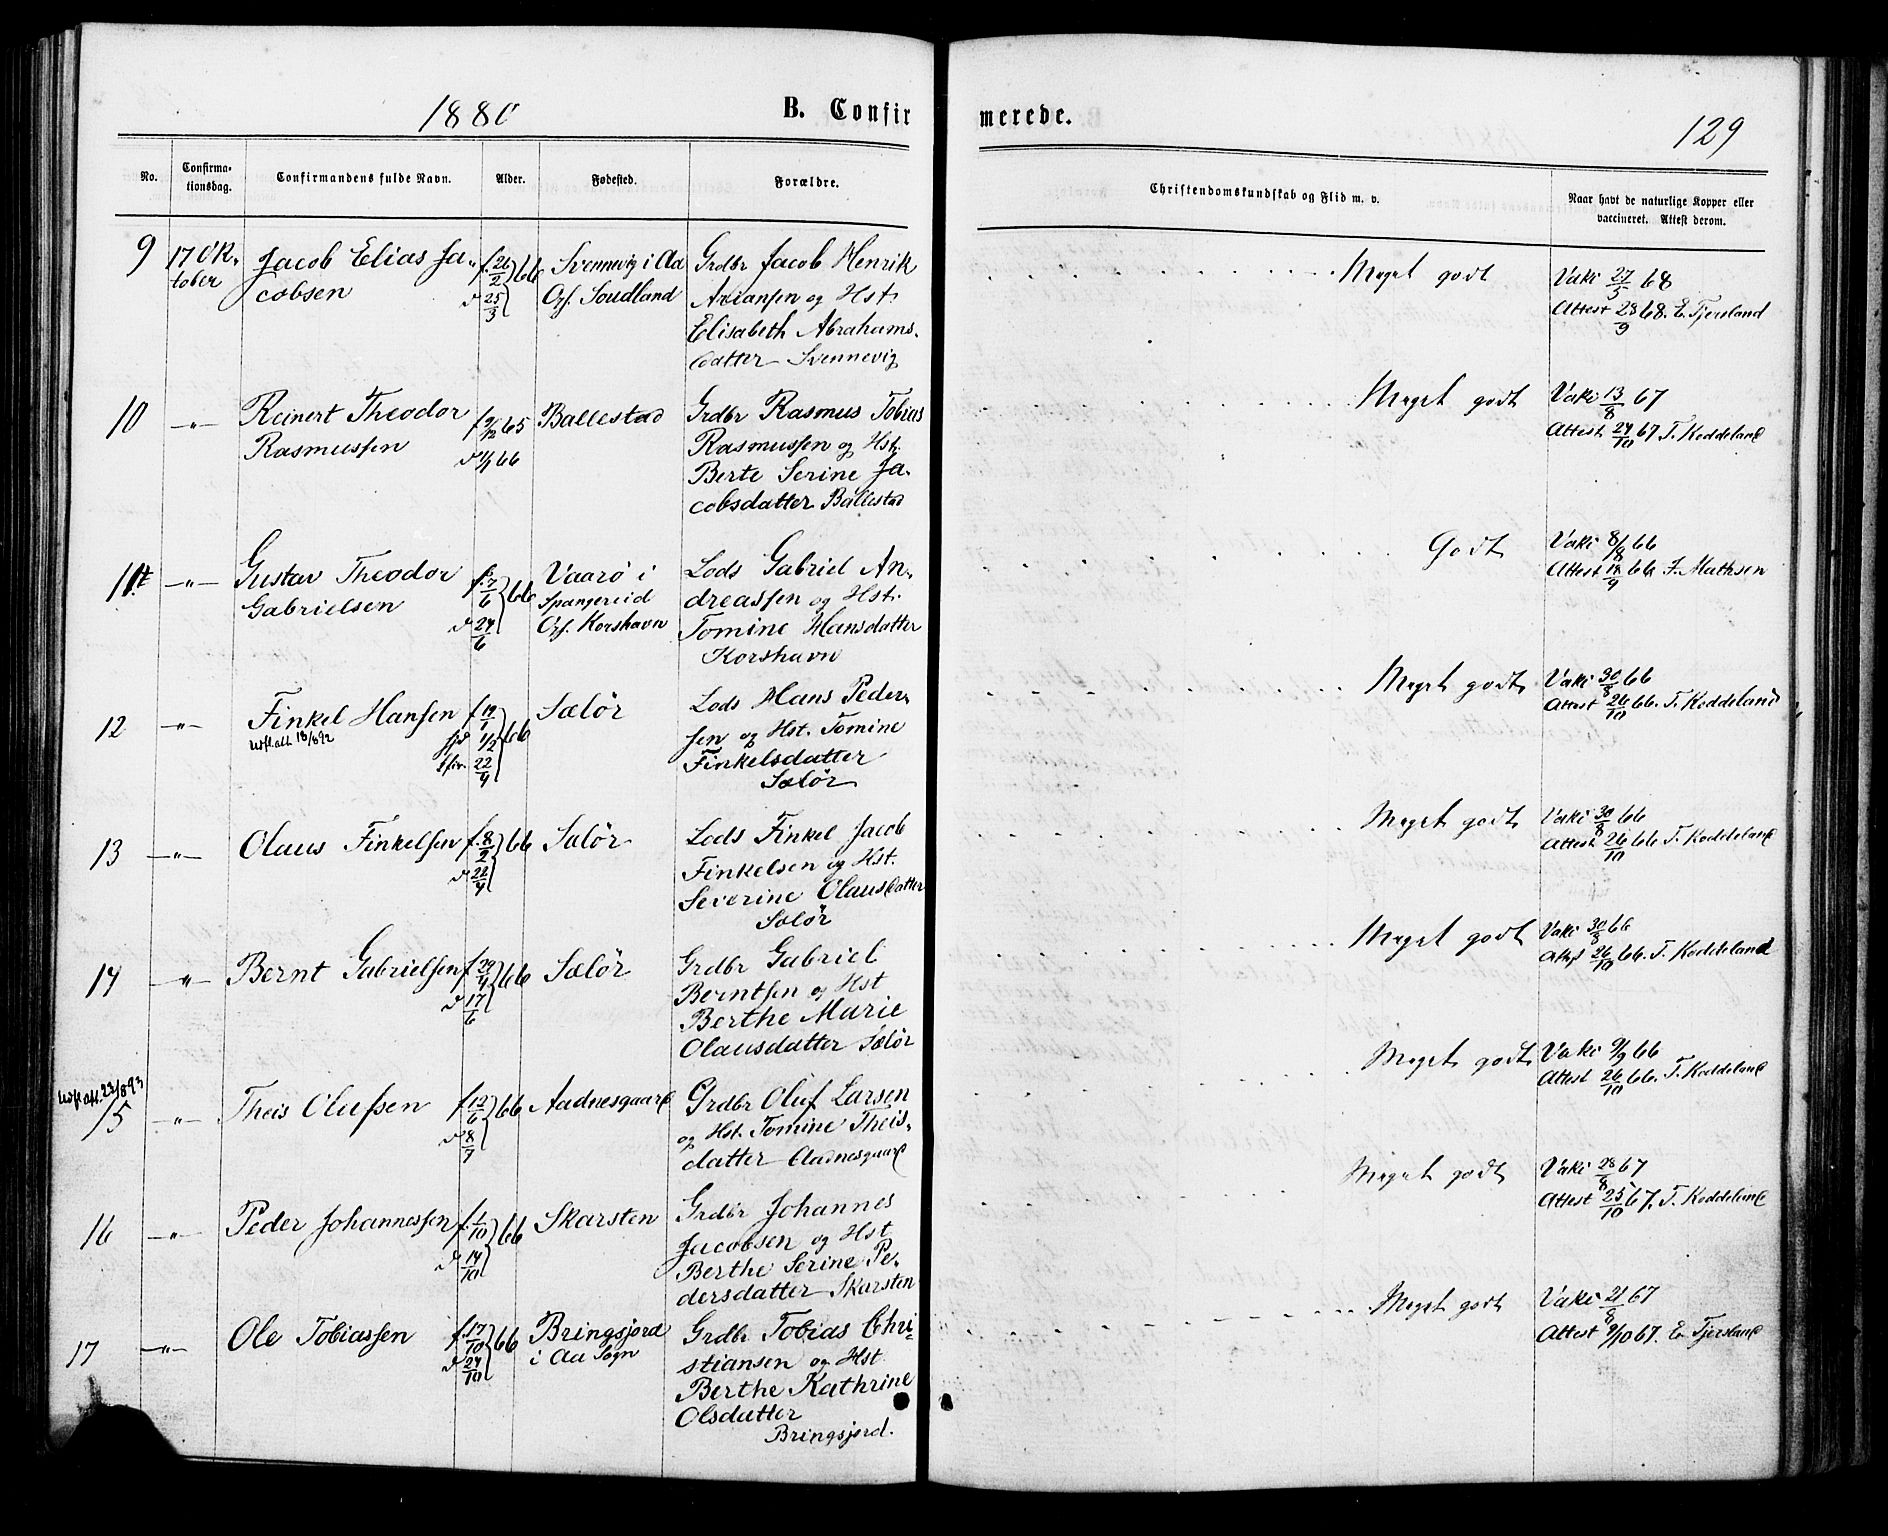 1880 B. Confirmerede. 129
No. Confirmationsdag. Confirmandens fulde Navn. Alder. Fødested. Forældre. Christendomskundskab og Flid m. v. Naar havt de naturlige Kopper eller vaccineret. Attest derom.
9 17 Ok- Jacob Elias Ja- f. 26/2 66 Svennevig i Aa Grdbr Jacob Henrik Meget godt Vaki 27/5 68
tober cobsen d 25/3 Opf. Soudland Ariansen og Hst. Attest 28/9 68. E. Tjersland
Elisabeth Abrahams-
datter Svennevig
10 -"- Reinert Theodor f 9/12 65 Ballestad Grdbr Rasmus Tobias Meget godt Vaki 13/8 67
Rasmussen d 1/1 66 Rasmussen og Hst. Attest 24/10 67 T. Koddeland
Berte Serine Ja-
cobsdatter Ballestad
11 -"- Gustav Theodor f. 7/6 66 Vaarö i Lods Gabriel An- Godt Vaki 8/8 66
Gabrielsen d 24/6 Spangereid dreassen og Hst. Attest 66 J. Mathsen
Opf. Korshavn Tomine Hansdatter
Korshavn
12 -"- Finkel Hansen f 19/1 66 Sælör Lods Hans Peder- Meget godt Vaki 30/8 66
Udst. att. 18/8 92 hjd 1/2 sen og Hst. Tomine Attest 26/10 66. T. Koddeland
22/4 Finkelsdatter
Sælör
13 -"- Olaus Finkelsen f. 8/2 66 Sælör Lods Finkel Jacob Meget godt Vaki 30/8 66
d 22/4 Finkelsen og Hst. Attest 26/10 66 T. Koddeland
Severine Olausdatter
Sælör
14 -"- Bernt Gabrielsen f. 29/4 66 Sælör Grdbr Gabriel Meget godt Vaki 30/8 66
d 17/6 Berntsen og Hst Attest 26/10 66. T. Koddeland
Berthe Marie
Olausdatter Sælör
Udst att. 23/8 93
15 -"- Theis Olufsen f. 12/6 66 Aadnesgaard Grdbr Oluf Larsen Meget godt Vaki 9/9 66
d 8/7 og Hst. Tomine Theis- Attest 26/10 66. T. Koddeland
datter Aadnesgaard
16 -"- Peder Johannessen f. 1/10 66 Skarsten Grdbr Johannes Meget godt Vaki 28/8 67
d 14/10 Jacobsen og Hst Attest 25/10 67. T. Koddeland
Berthe Serine Pe-
dersdatter Skarsten
17 -"- Ole Tobiassen f. 17/10 66 Bringsjord Grdbr Tobias Chri- Meget godt Vaki 21/8 67
d 24/10 i Aa Sogn stiansen og Hst Attest 9/10 67. E. Tjersland
Berthe Kathrine
Olsdatter
Bringsjord.